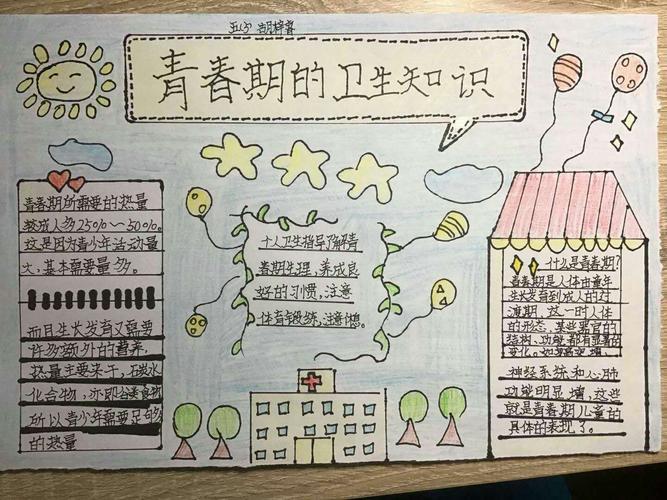 五(3) 胡梓睿
青春期的卫生知识
青春期所需要的热量
较成人多25%～50%。
这是因为青少年活动量
大，基本需要量多。
而且生长发育又需要
许多额外的营养，
热量主要来于，碳水
化合物，亦即谷类食物
所以青少年需要足够
的热量
个人卫生指导了解青
春期生理，养成良
好的习惯，注意
体育锻练，注意
什么是青春期？
青春期是人体由童年
生长发育到成人的过
渡期，这一时人体
的形态，某些器官的
结构、功能都有显著的
变化。如
神经系统和心肺
功能明显增，这些
就是青春期儿童的
具体的表现了。